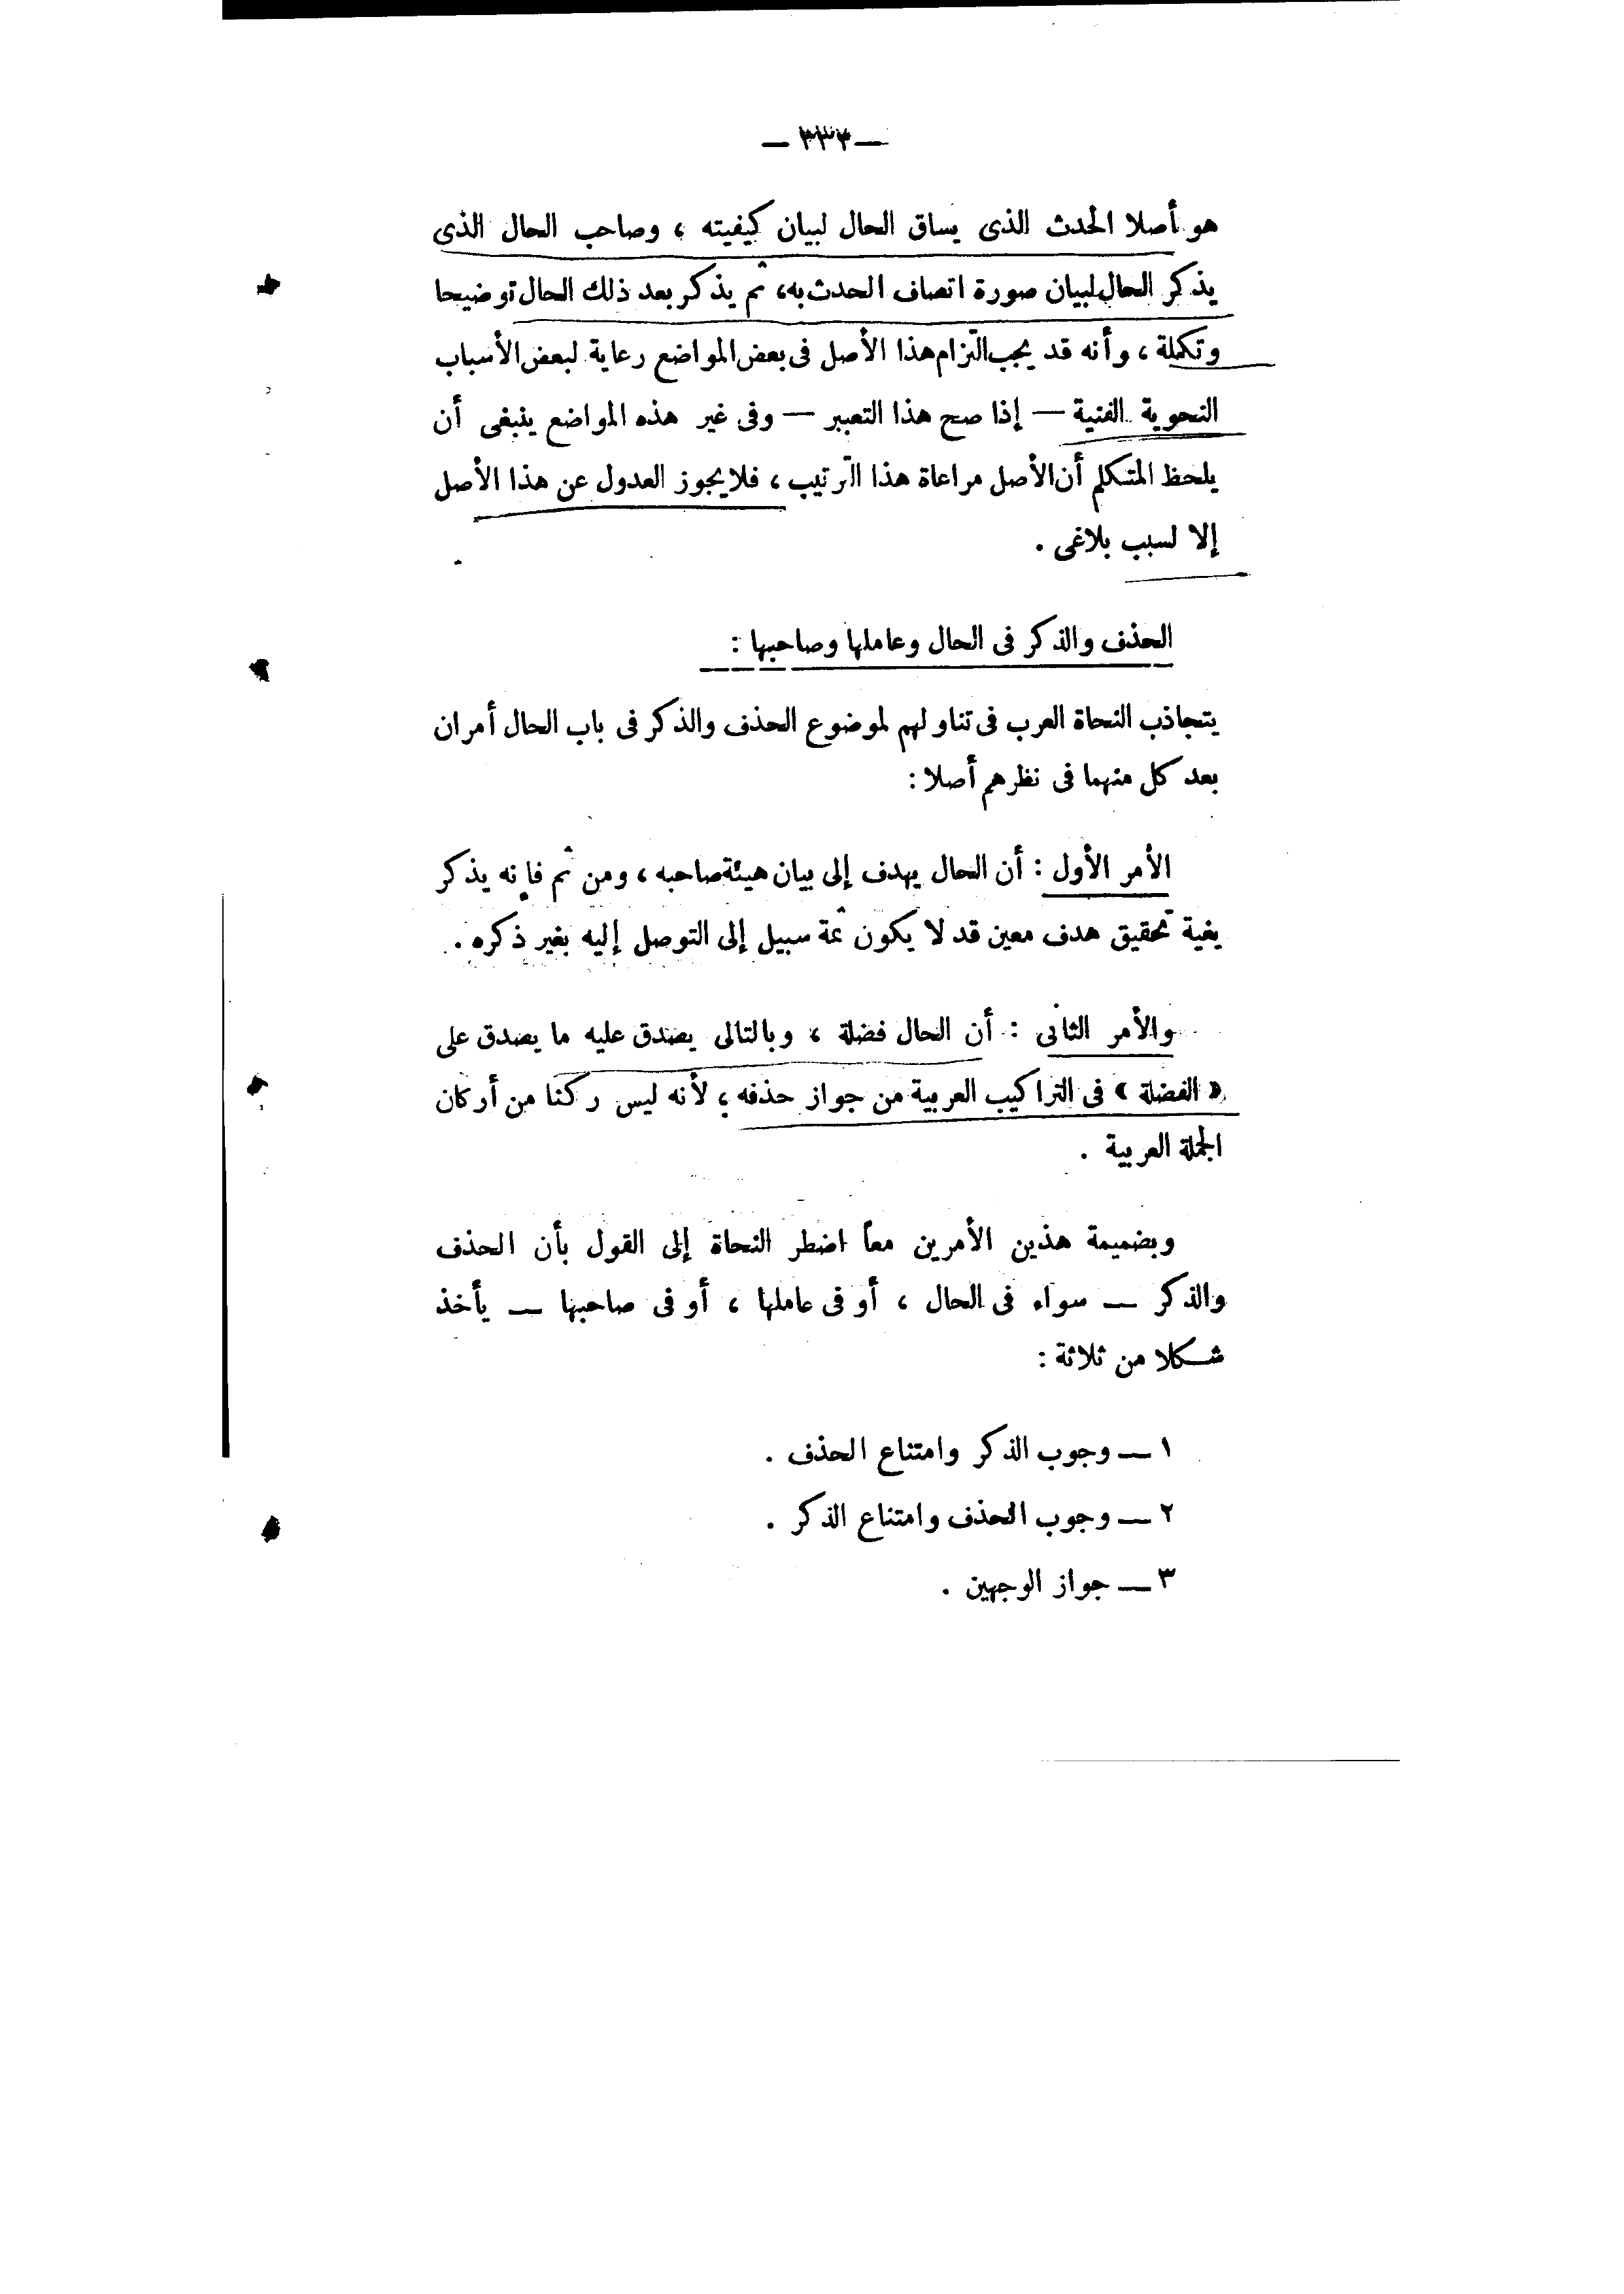 — ٣٣٣ —
هو أصلا الحدث الذى يساق الحال لبيان كيفيته ، وصاحب الحال الذى
يذكر الحال لبيان صورة اتصاف الحدث به، ثم يذكر بعد ذلك الحال توضيحا
وتكملة ، وأنه قد يجب التزام هذا الأصل فى بعض المواضع رعاية لبعض الأسباب
النحوية الفنية — إذا صح هذا التعبير — وفى غير هذه المواضع ينبغى أن
يلحظ المتكلم أن الأصل مراعاة هذا الترتيب ، فلا يجوز العدول عن هذا الأصل
إلا لسبب بلاغى .
الحذف والذكر فى الحال وعاملها وصاحبها :
يتجاذب النحاة العرب فى تناولهم لموضوع الحذف والذكر فى باب الحال أمران
بعد كل منهما فى نظرهم أصلا :
الأمر الأول : أن الحال يهدف إلى بيان هيئة صاحبه ، ومن ثم فإنه يذكر
بغية تحقيق هدف معين قد لا يكون ثمة سبيل إلى التوصل إليه بغير ذكره .
والأمر الثانى : أن الحال فضلة ، وبالتالى يصدق عليه ما يصدق على
« الفضلة » فى التراكيب العربية من جواز حذفه ؛ لأنه ليس ركنا من أركان
الجملة العربية .
وبضميمة هذين الأمرين معاً اضطر النحاة إلى القول بأن الحذف
والذكر — سواء فى الحال ، أو فى عاملها ، أو فى صاحبها — يأخذ
شكلا من ثلاثة :
١ — وجوب الذكر وامتناع الحذف .
٢ — وجوب الحذف وامتناع الذكر .
٣ — جواز الوجهين .